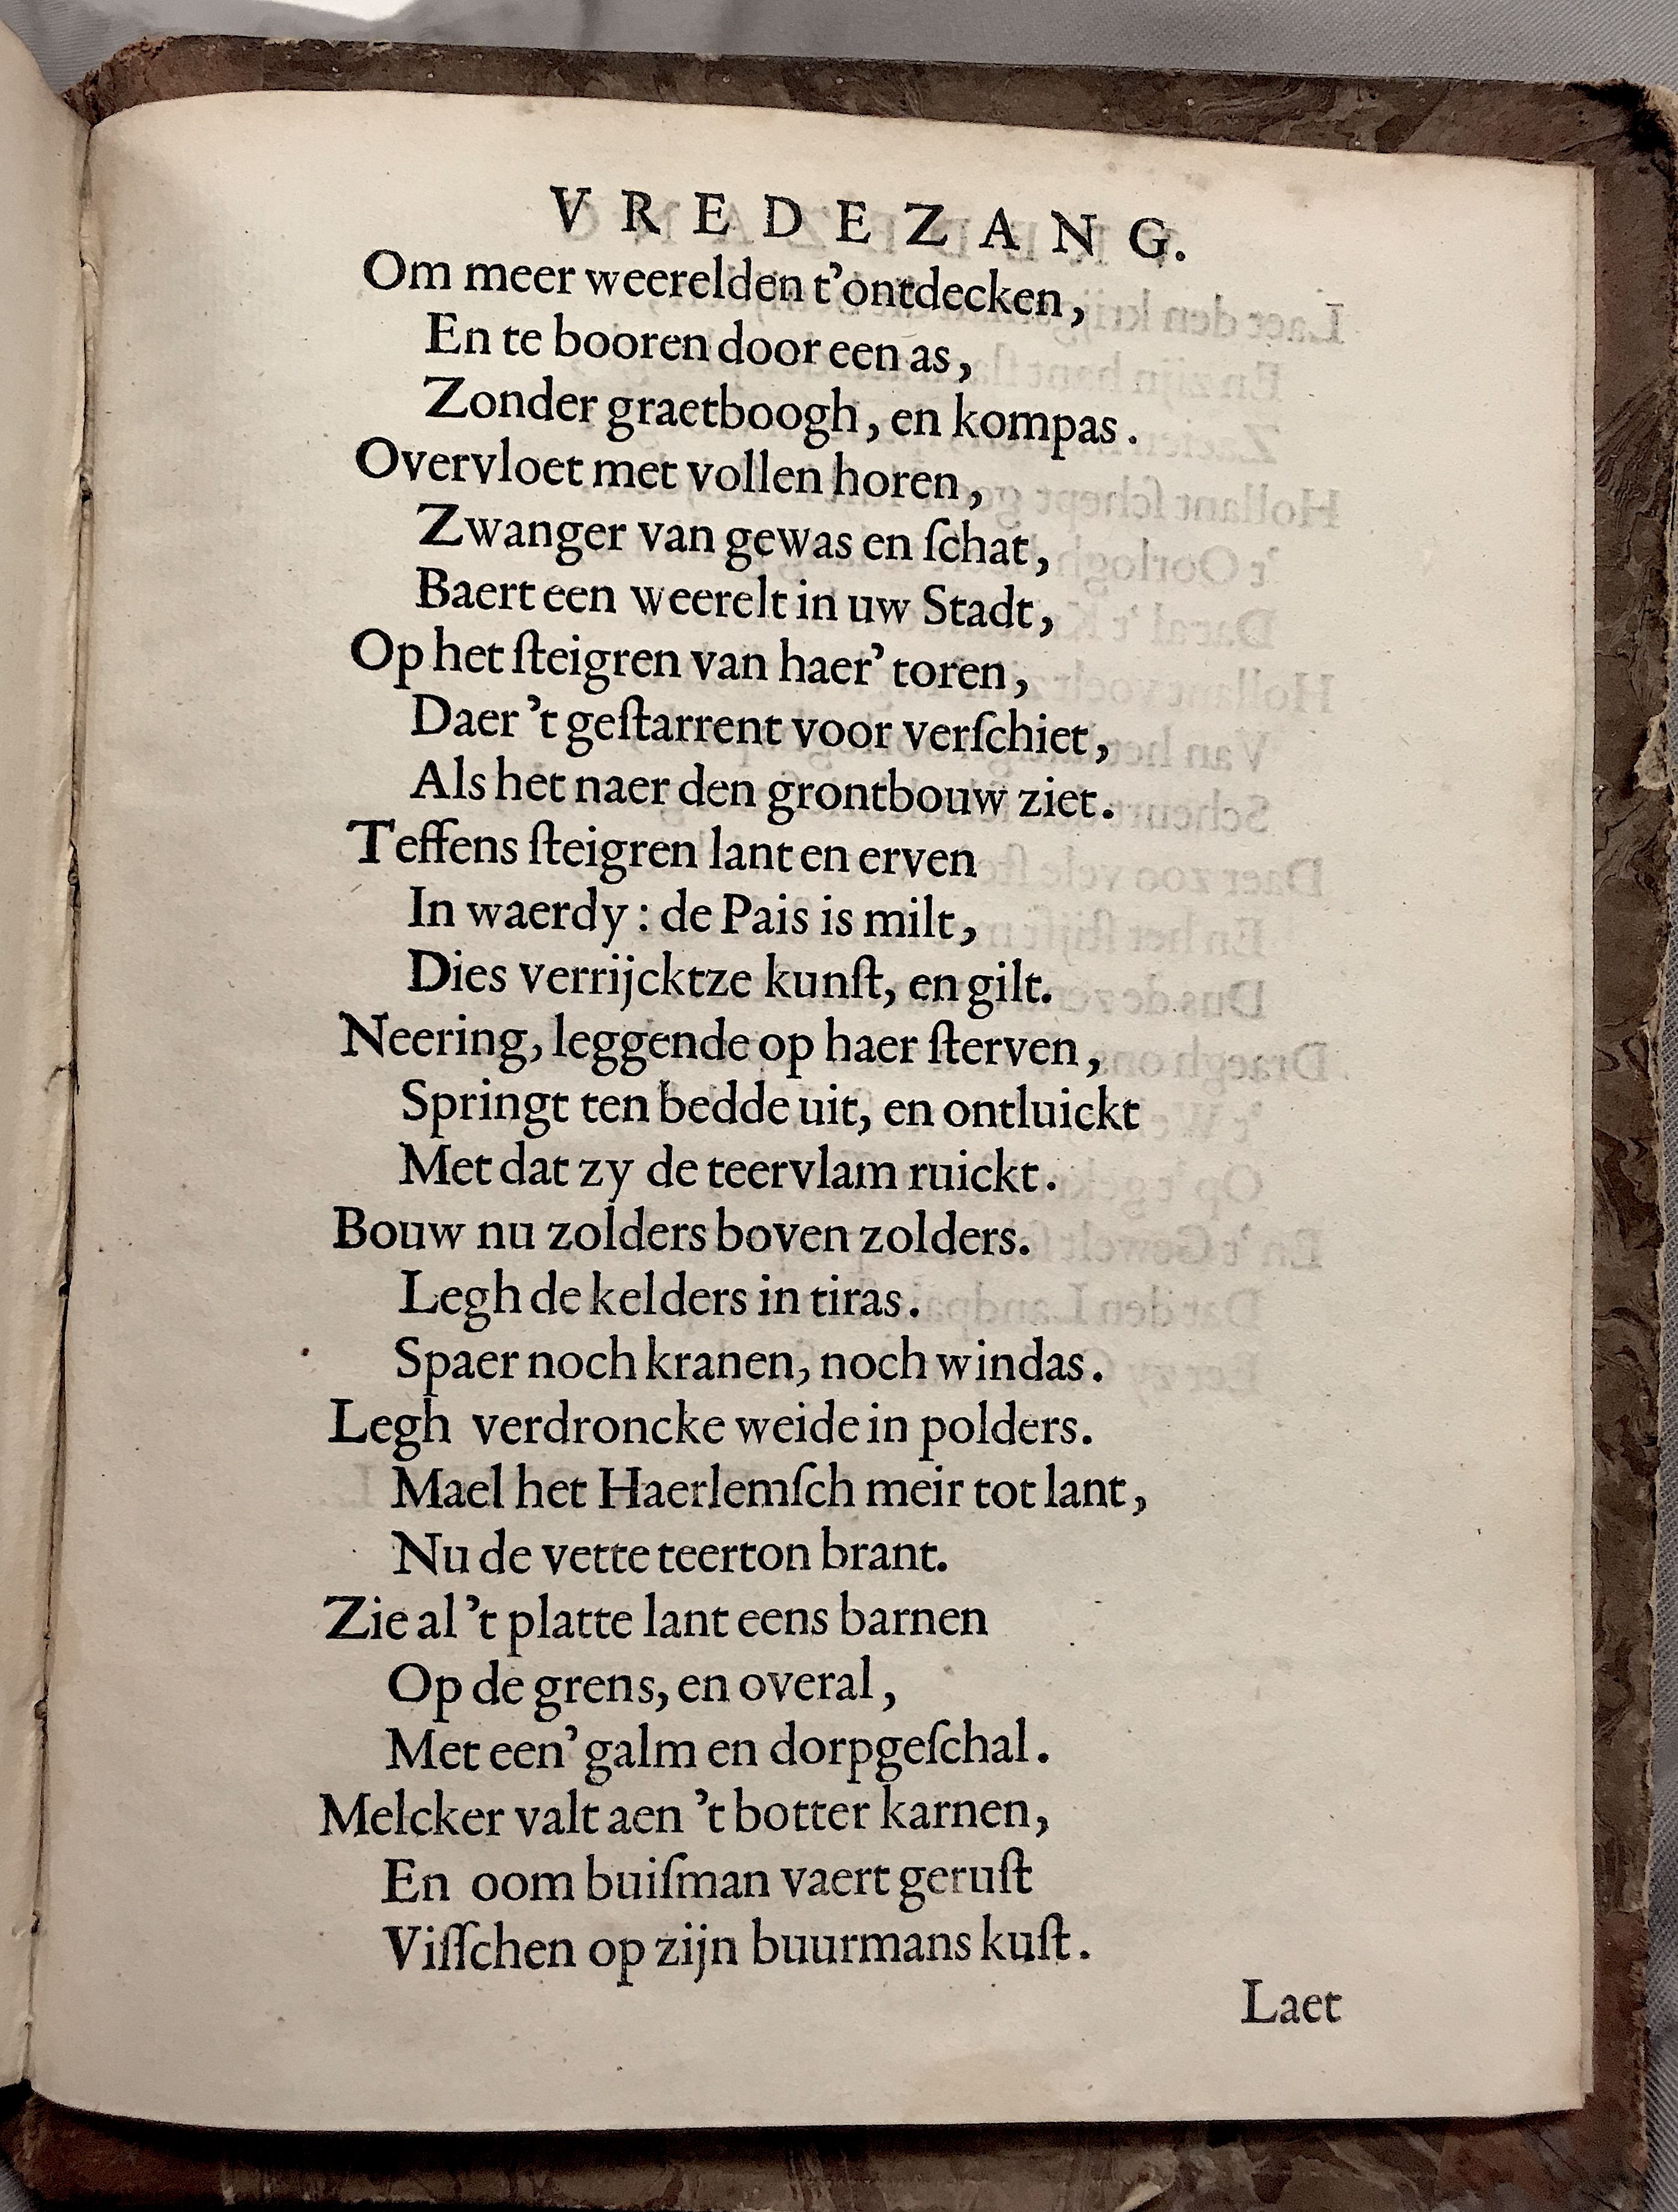 VREDEZANG.
Om meer weerelden t'ontdecken,
En te booren door een as,
Zonder graetboogh, en kompas.
Overvloet met vollen horen,
Zwanger van gewas en ſchat,
Baert een weerelt in uw Stadt,
Op het ſteigren van haer' toren,
Daer 't geſtarrent voor verſchiet,
Als het naer den grontbouw ziet.
Teffens ſteigren lant en erven
In waerdy: de Pais is milt,
Dies verrijcktze kunſt, en gilt.
Neering, leggende op haer ſterven,
Springt ten bedde uit, en ontluickt
Met dat zy de teervlam ruickt.
Bouw nu zolders boven zolders.
Legh de kelders in tiras.
Spaer noch kranen, noch windas.
Legh verdroncke weide in polders.
Mael het Haerlemſch meir tot lant,
Nu de vette teerton brant.
Zie al 't platte lant eens barnen
Op de grens, en overal,
Met een' galm en dorpgeſchal.
Melcker valt aen 't botter karnen,
En oom buiſman vaert geruſt
Viſſchen op zijn buurmans kuſt.
Laet